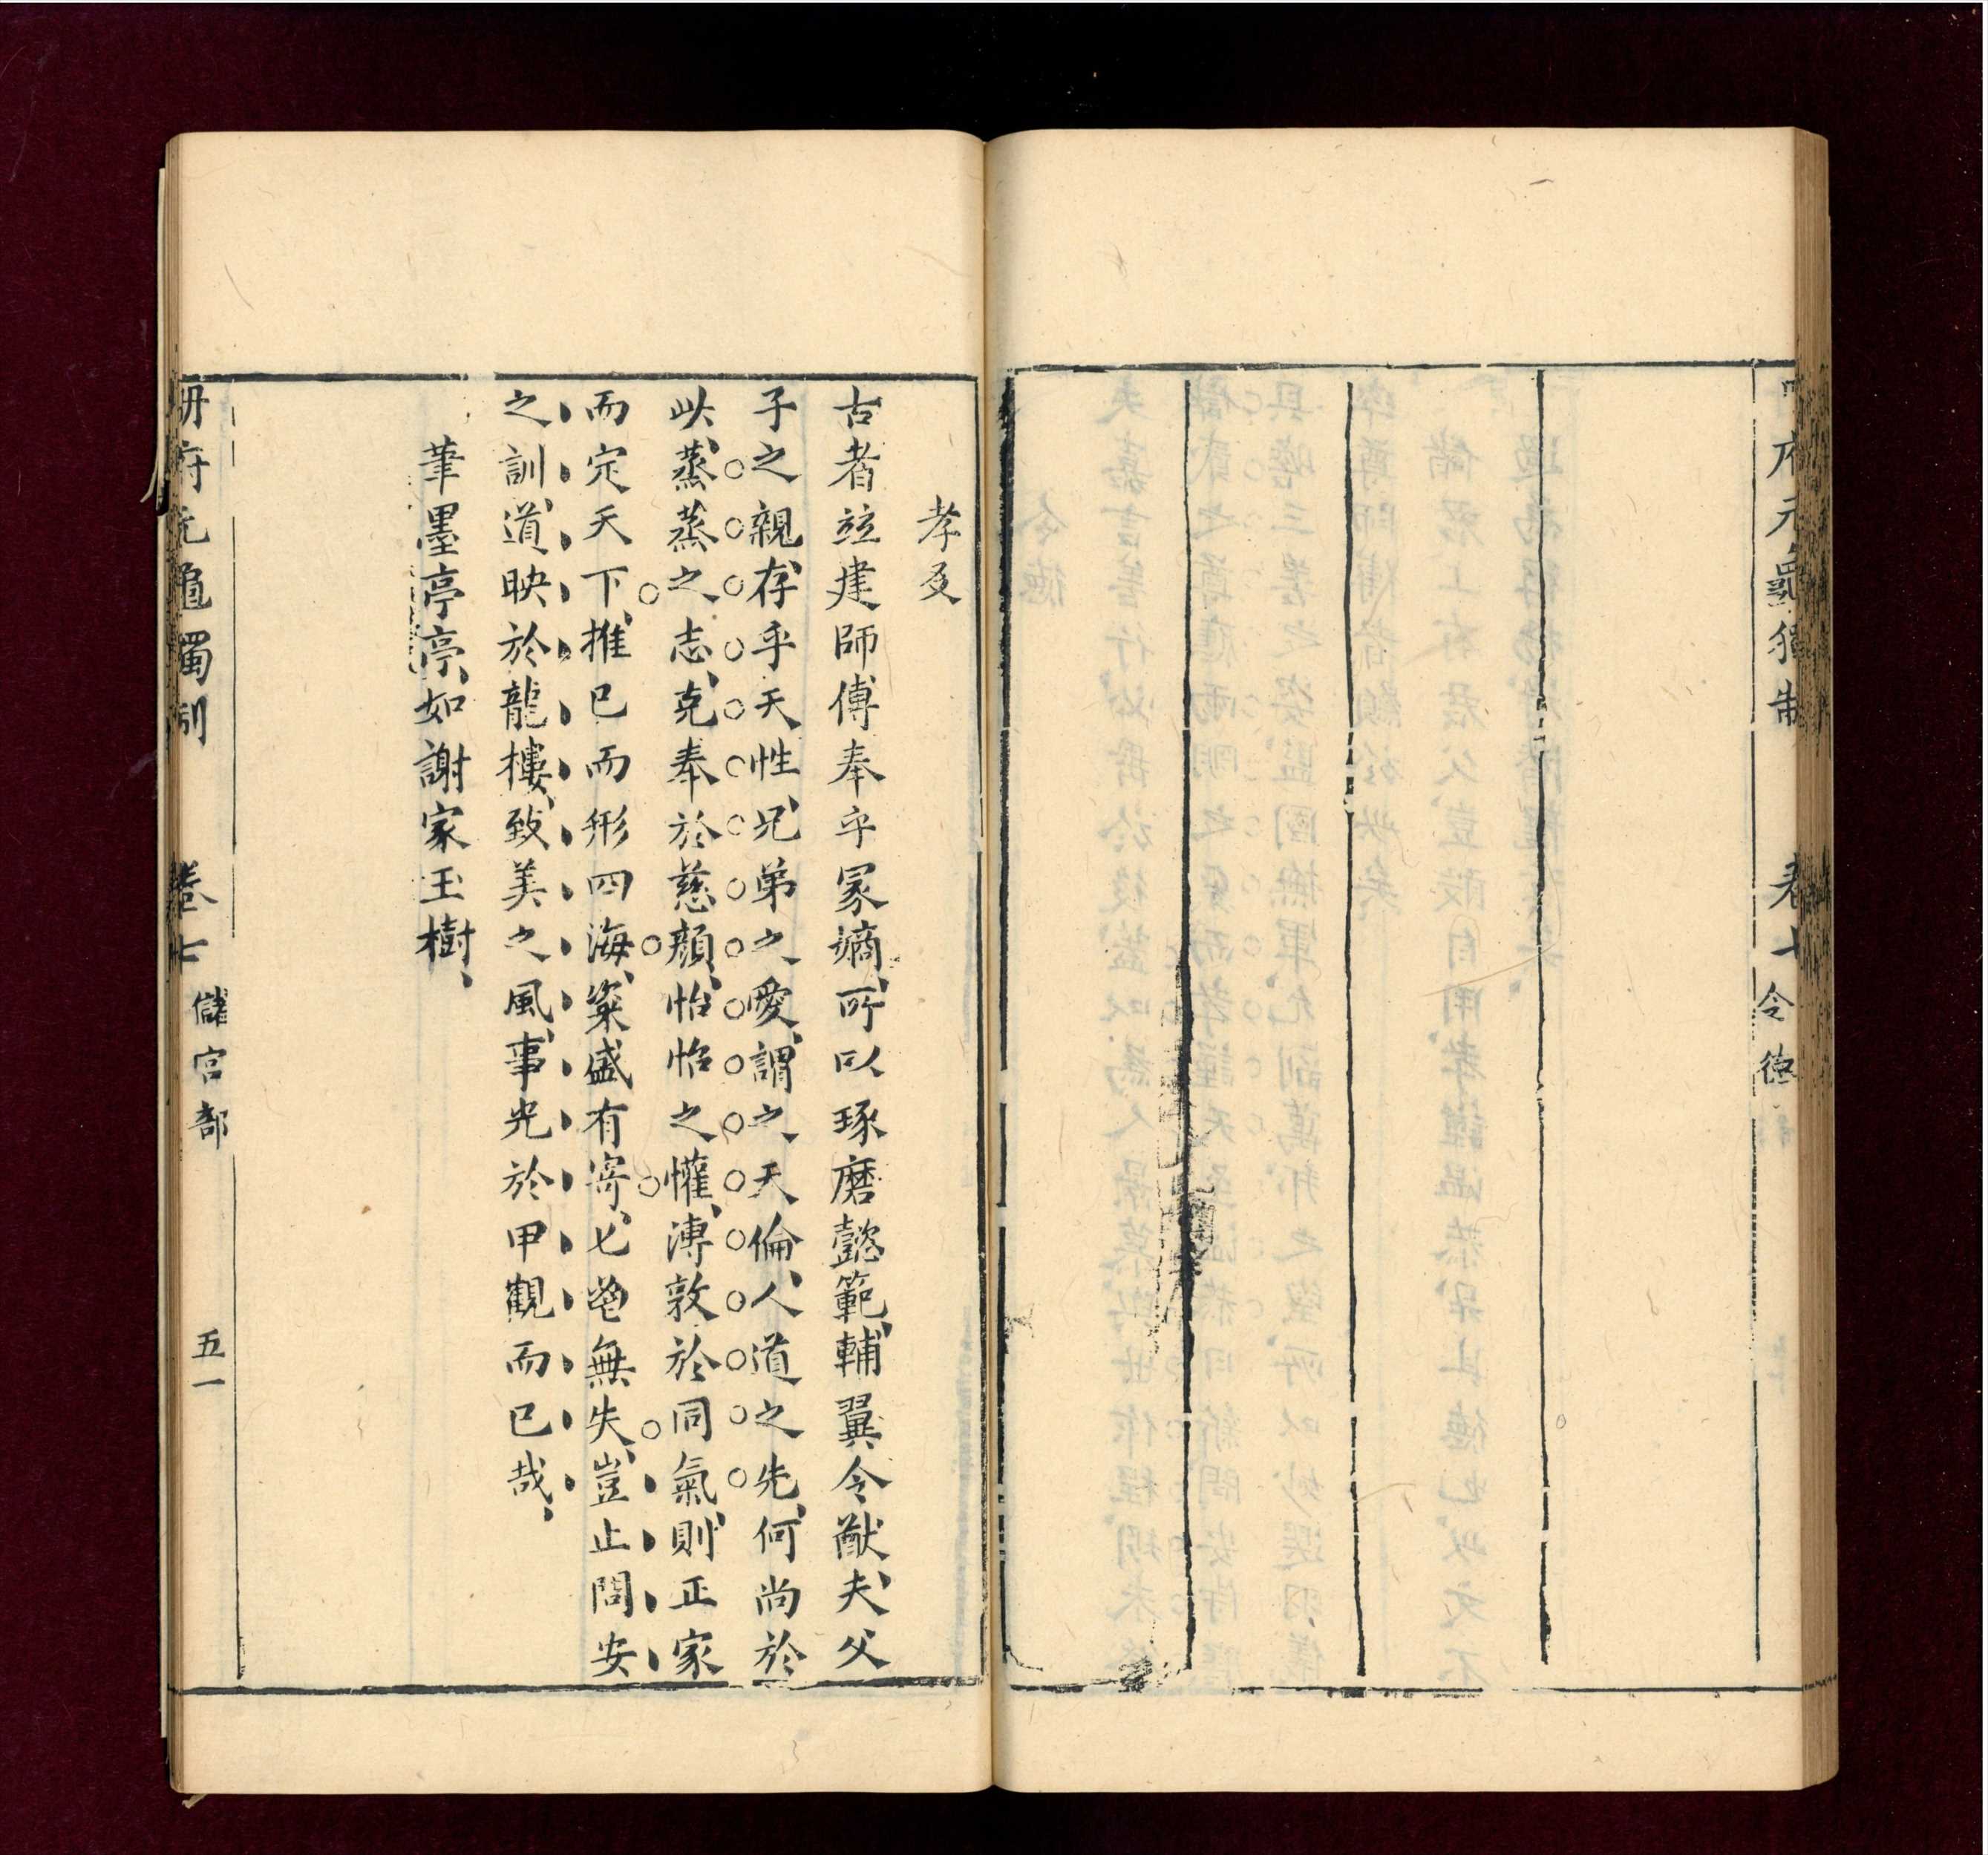 府元龜獨制 卷七 令德
孝友
古者竝建師傅奉乎冢嫡、所以琢磨懿範、輔翼令猷、夫父
子之親、存乎天性、兄弟之愛、謂之天倫、人道之先、何尚於
此、蒸蒸之志、克奉於慈顔、怡怡之懽、溥敦於同氣、則正家
而定天下、推已而形四海、粢盛有寄、匕鬯無失、豈止問安
之訓、道映於龍樓、致美之風、事光於甲觀而已哉、
筆墨亭亭、如謝家玉樹、
册府元龜獨制 卷七 儲宮部 五一